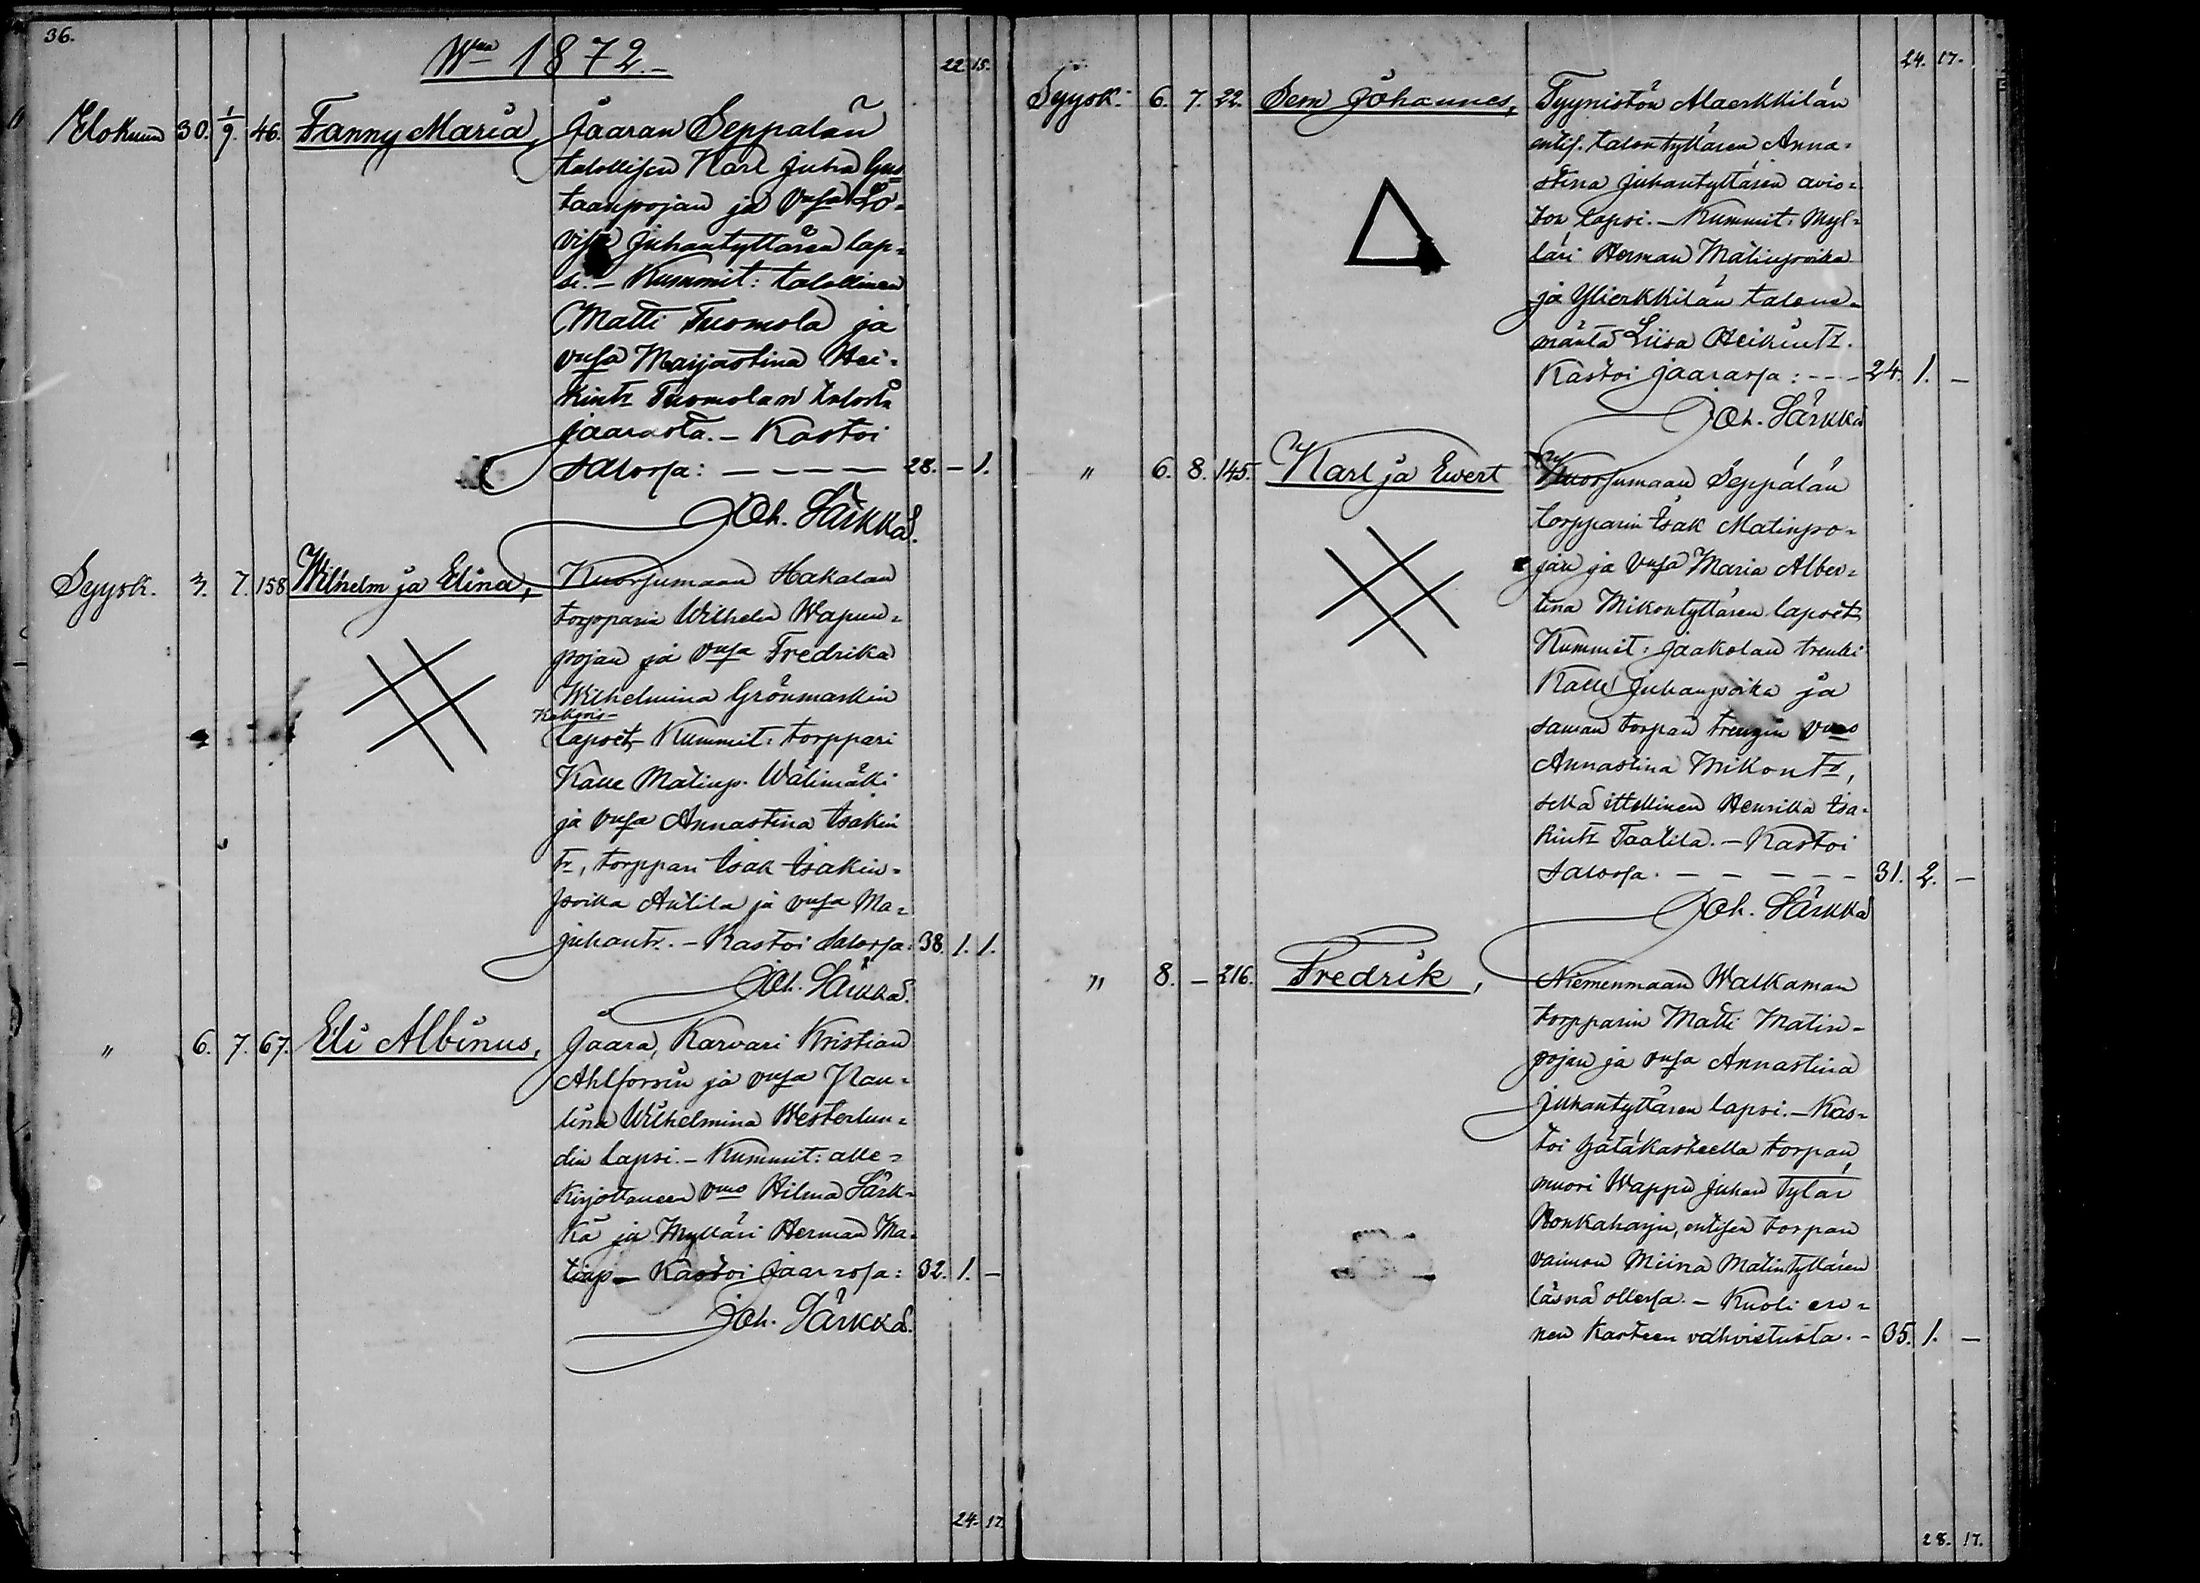 36.
Wna 1872.-
22. 15.
Elokuun 30. 1/9. 46. Fanny Maria, Jaaran Seppälän
talollisen Karl Juha Gus
taanpojan ja vnsa Lo-
visa Juhantyttären lap-
si. - Kummit: talollinen
Matti Tuomola ja
vnsa Maijastina Hei-
kintr Tuomolan talosta
Jaarasta. - Kastoi
Salossa: - - - - 28. - 1.
Joh. Särkkä.
Syysk. 3. 7. 158 Wilhelm ja Elina, Kuorsumaan Hakalan
torpparin Wilhelm Wapun-
pojan ja vnsa Fredrika
Wilhelmina Grönmarkin
Kaksois-
lapset, Kummit: torppari
Kalle Matinp. Wälimäki
ja vnsa Annastina Isakin
tr, torppari Isak Isakin-
poika Antila ja vnsa Ma-
Juhantr. - Kastoi Salossa: 38. 1. 1.
Joh. Särkkä.
" 6. 7. 67. Eli Albinus, Jaara, Karvari Kristian
Ahlforsin ja vnsa Pau-
lina Wilhelmina Westerlun-
din lapsi. - Kummit: alle-
kirjottaneen vmo Hilma Särk-
kä ja Mylläri Herman Ma-
tinp - Kastoi Jaarassa: 32. 1. -
Joh. Särkkä.
24. 17.
24. 17.
Syysk. 6. 7. 22. Sem Johannes, Tyynistön Alaerkkilän
entis. talon tyttären Anna-
stina Juhantyttären avio-
ton lapsi. - Kummit: Myl-
läri Herman Matinpoika
ja Ylierkkilän talone-
mäntä Liisa Heikintr.
Kastoi Jaarassa: - - - 24. 1. -
Joh. Särkkä
" 6. 8. 145. Karl ja Ewert Kuorsumaan Seppälän
torpparin Isak Matinpo-
jan ja vnsa Maria Alber-
tina Mikontyttären lapset
Kummit: Jaakolan trenki
Kalle Juhanpoika ja
saman torpan trengin vmo
Annastina Mikontr,
sekä ittellinen Henrikka Isa-
kintr Taatila. - Kastoi
Salossa. - - - - - 31. 2. -
Joh. Särkkä
" 8. - 216. Fredrik, Niemenmaan Walkaman
torpparin Matti Matin-
pojan ja vnsa Annastina
Juhantyttären lapsi. - Kas-
toi hätäkasteella torpan
muori Wappu Juhan Tytär
Ronkaharju, entisen torpan
vaimon Miina Matintyttären
läsnä ollessa. - Kuoli en-
nen kasteen vahvistusta. - 35. 1. -
28. 17.